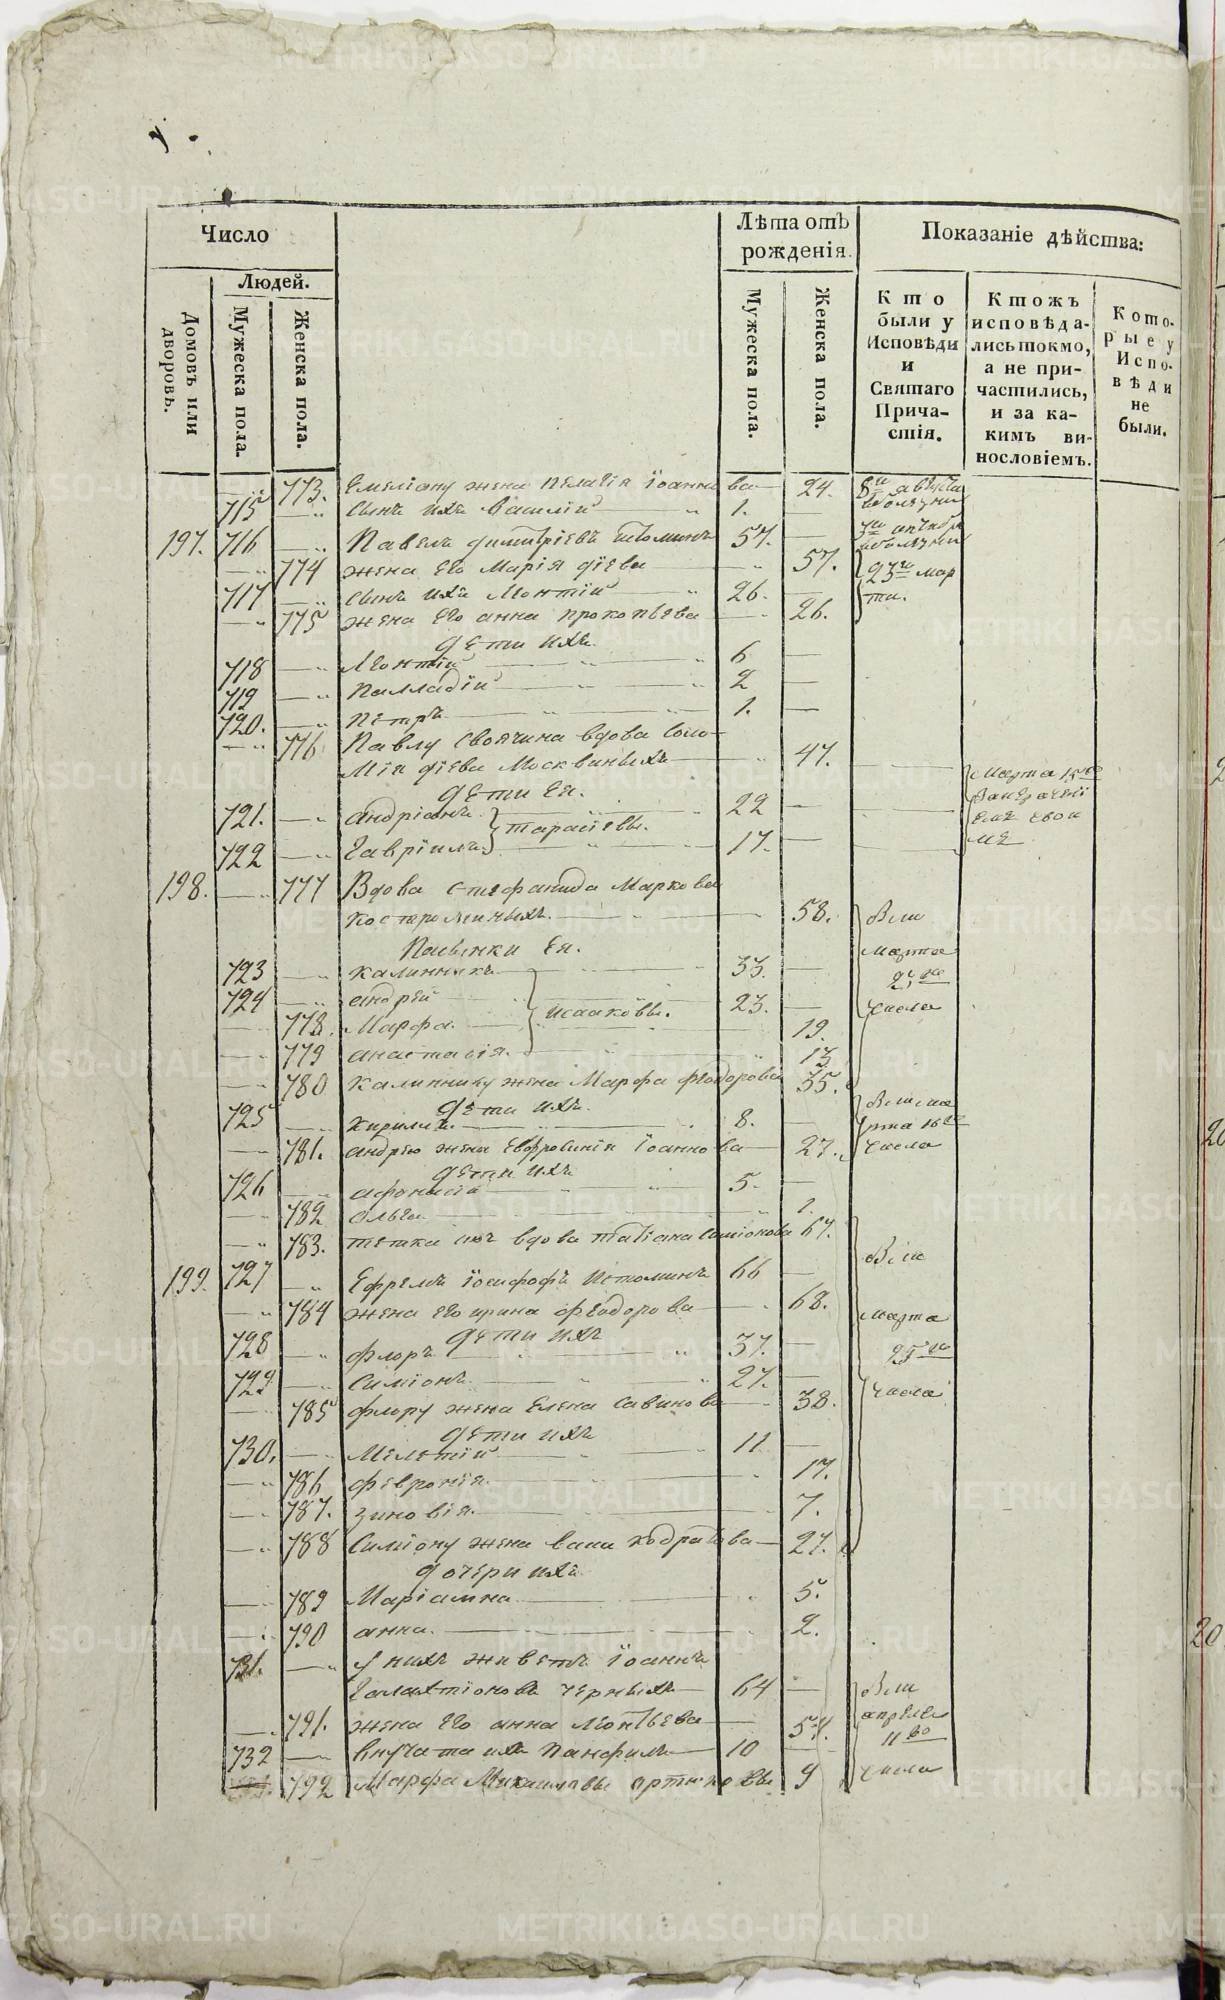 Число
Лѣта отъ рожденія.
Показаніе дѣйства:
Людей.
Домовъ или дворовъ.
Мужеска пола.
Женска пола.
Мужеска пола.
Женска пола.
Кто были у Исповѣди и Святаго Причастія.
Ктожъ исповѣдались токмо, а не причастились, и за какимъ винословіемъ.
Которые у Исповѣди не были.
773. Емеліану жена Пелагія Іоаннова 24.
715 сынъ ихъ Василій 1.
197. 716 Павелъ Димитріевъ Истоминъ 57.
774 жена его Марія Фіева 57. 23го мар
717 сынъ ихъ Леонтій 26. та.
775 жена его Анна Прокопьева 26.
дѣти ихъ
718 Леонтій 6
719 Палладій 2
720. Петръ 1.
776 Павлу своячина вдова Соло
мія Фіева Москвиныхъ 47. Марта 15го
дѣти ея.
721. Андріанъ 22
Тарасіевы.
722 Гавріилъ 17.
198. 777 Вдова Стефанида Маркова
Костроминыхъ. 58.
Пасынки ея. Марта
723 Калинникъ 33. 25го
724 Андрей 23. числа
Исааковы.
778. Марфа. 19.
779 Анастасія. 13
780 Калиннику жена Марфа Феодорова 35.
дѣти ихъ.
725 Кирилъ. 8. рта 16го
781. Андрею жена Евфросинія Іоаннова 27. числа
дѣти ихъ
726 Афонасій 5.
782 Ольга 1.
783. тетка ихъ вдова Татіана Симіонова 67.
199. 727 Ефремъ Іосифофъ Истоминъ 66
784 жена его Ирина Феодорова 68. Марта
дѣти ихъ
728 Флоръ 37. 25го
729 Симіонъ 27. числа
785 Флору жена Елена Савинова 38.
дѣти ихъ
730. Мелетій 11
786 Февронія. 17.
787. Зиновія. 7.
788 Симіону жена Васа Кодратова 27.
дочери ихъ
789 Маріамна 5.
790 Анна. 2.
731. У нихъ живетъ Іоаннъ
Галактіоновъ Черныхъ 64
791. жена его Анна Леонтьева 57. апреля 11го
732 внучата ихъ Панфилъ 10
792 Марфа Михаиловы Артюховы 9 числа
METRIKI.GASO-URAL.RU